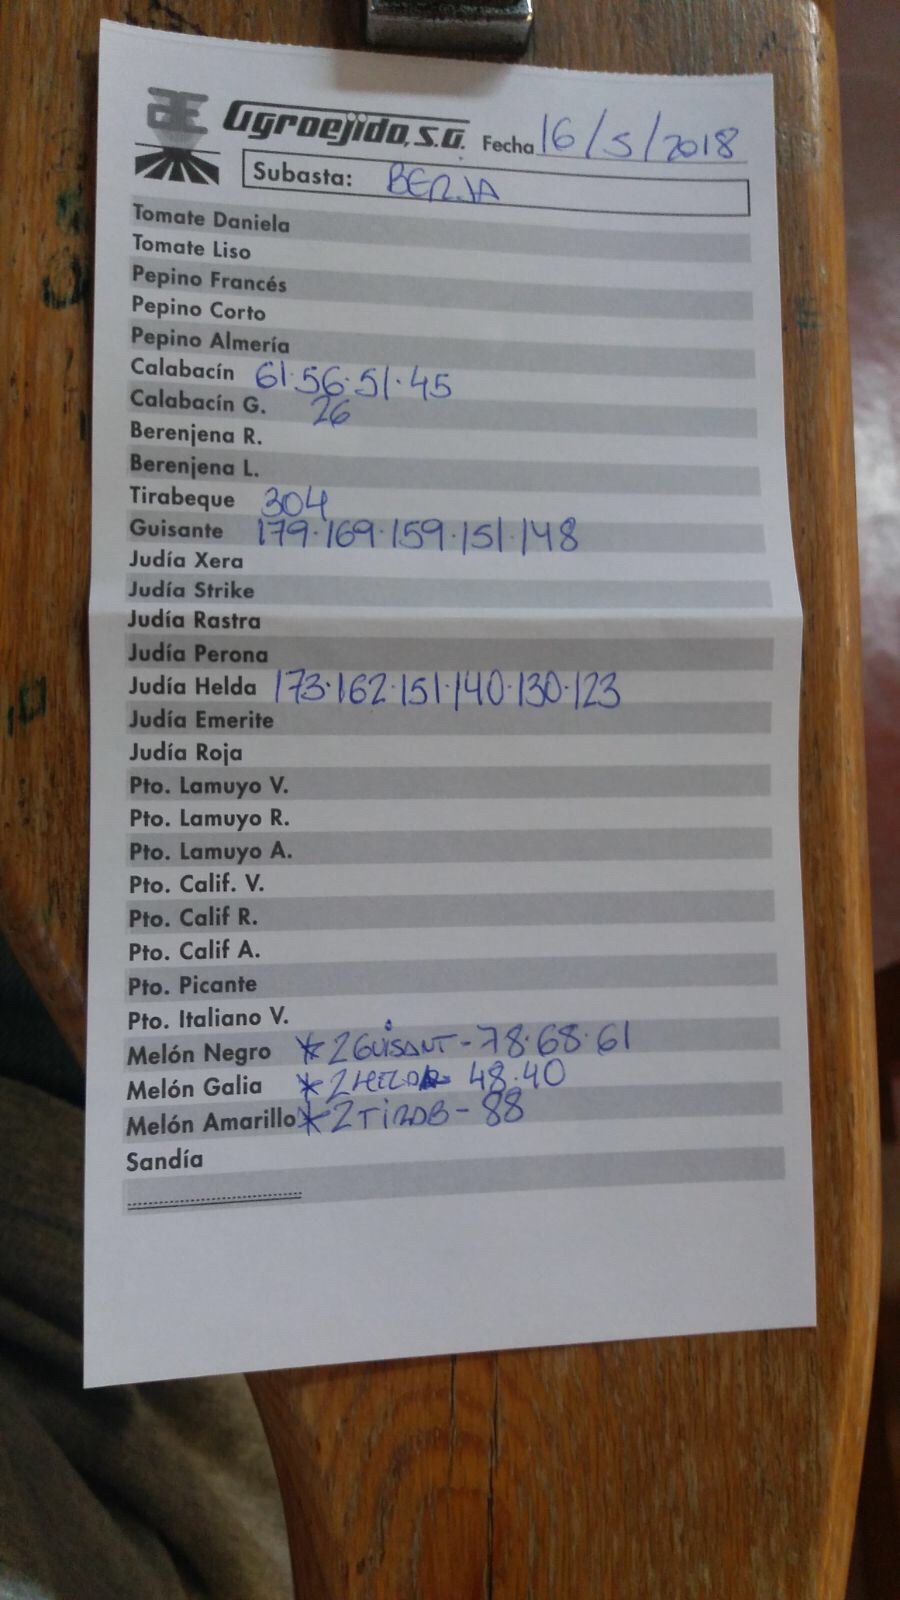 Agroejido, S.A. Fecha 16/5/2018
Subasta: BERJA
Tomate Daniela
Tomate Liso
Pepino Francés
Pepino Corto
Pepino Almería
Calabacín 61·56·51·45
Calabacín G. 26
Berenjena R.
Berenjena L.
Tirabeque 304
Guisante 179·169·159·151·148
Judía Xera
Judía Strike
Judía Rastra
Judía Perona
Judía Helda 173·162·151·140·130·123
Judía Emerite
Judía Roja
Pto. Lamuyo V.
Pto. Lamuyo R.
Pto. Lamuyo A.
Pto. Calif. V.
Pto. Calif R.
Pto. Calif A.
Pto. Picante
Pto. Italiano V.
Melón Negro * 2 GUISANT - 78·68·61
Melón Galia * 2 HELDA 48·40
Melón Amarillo * 2 TIRAB - 88
Sandía